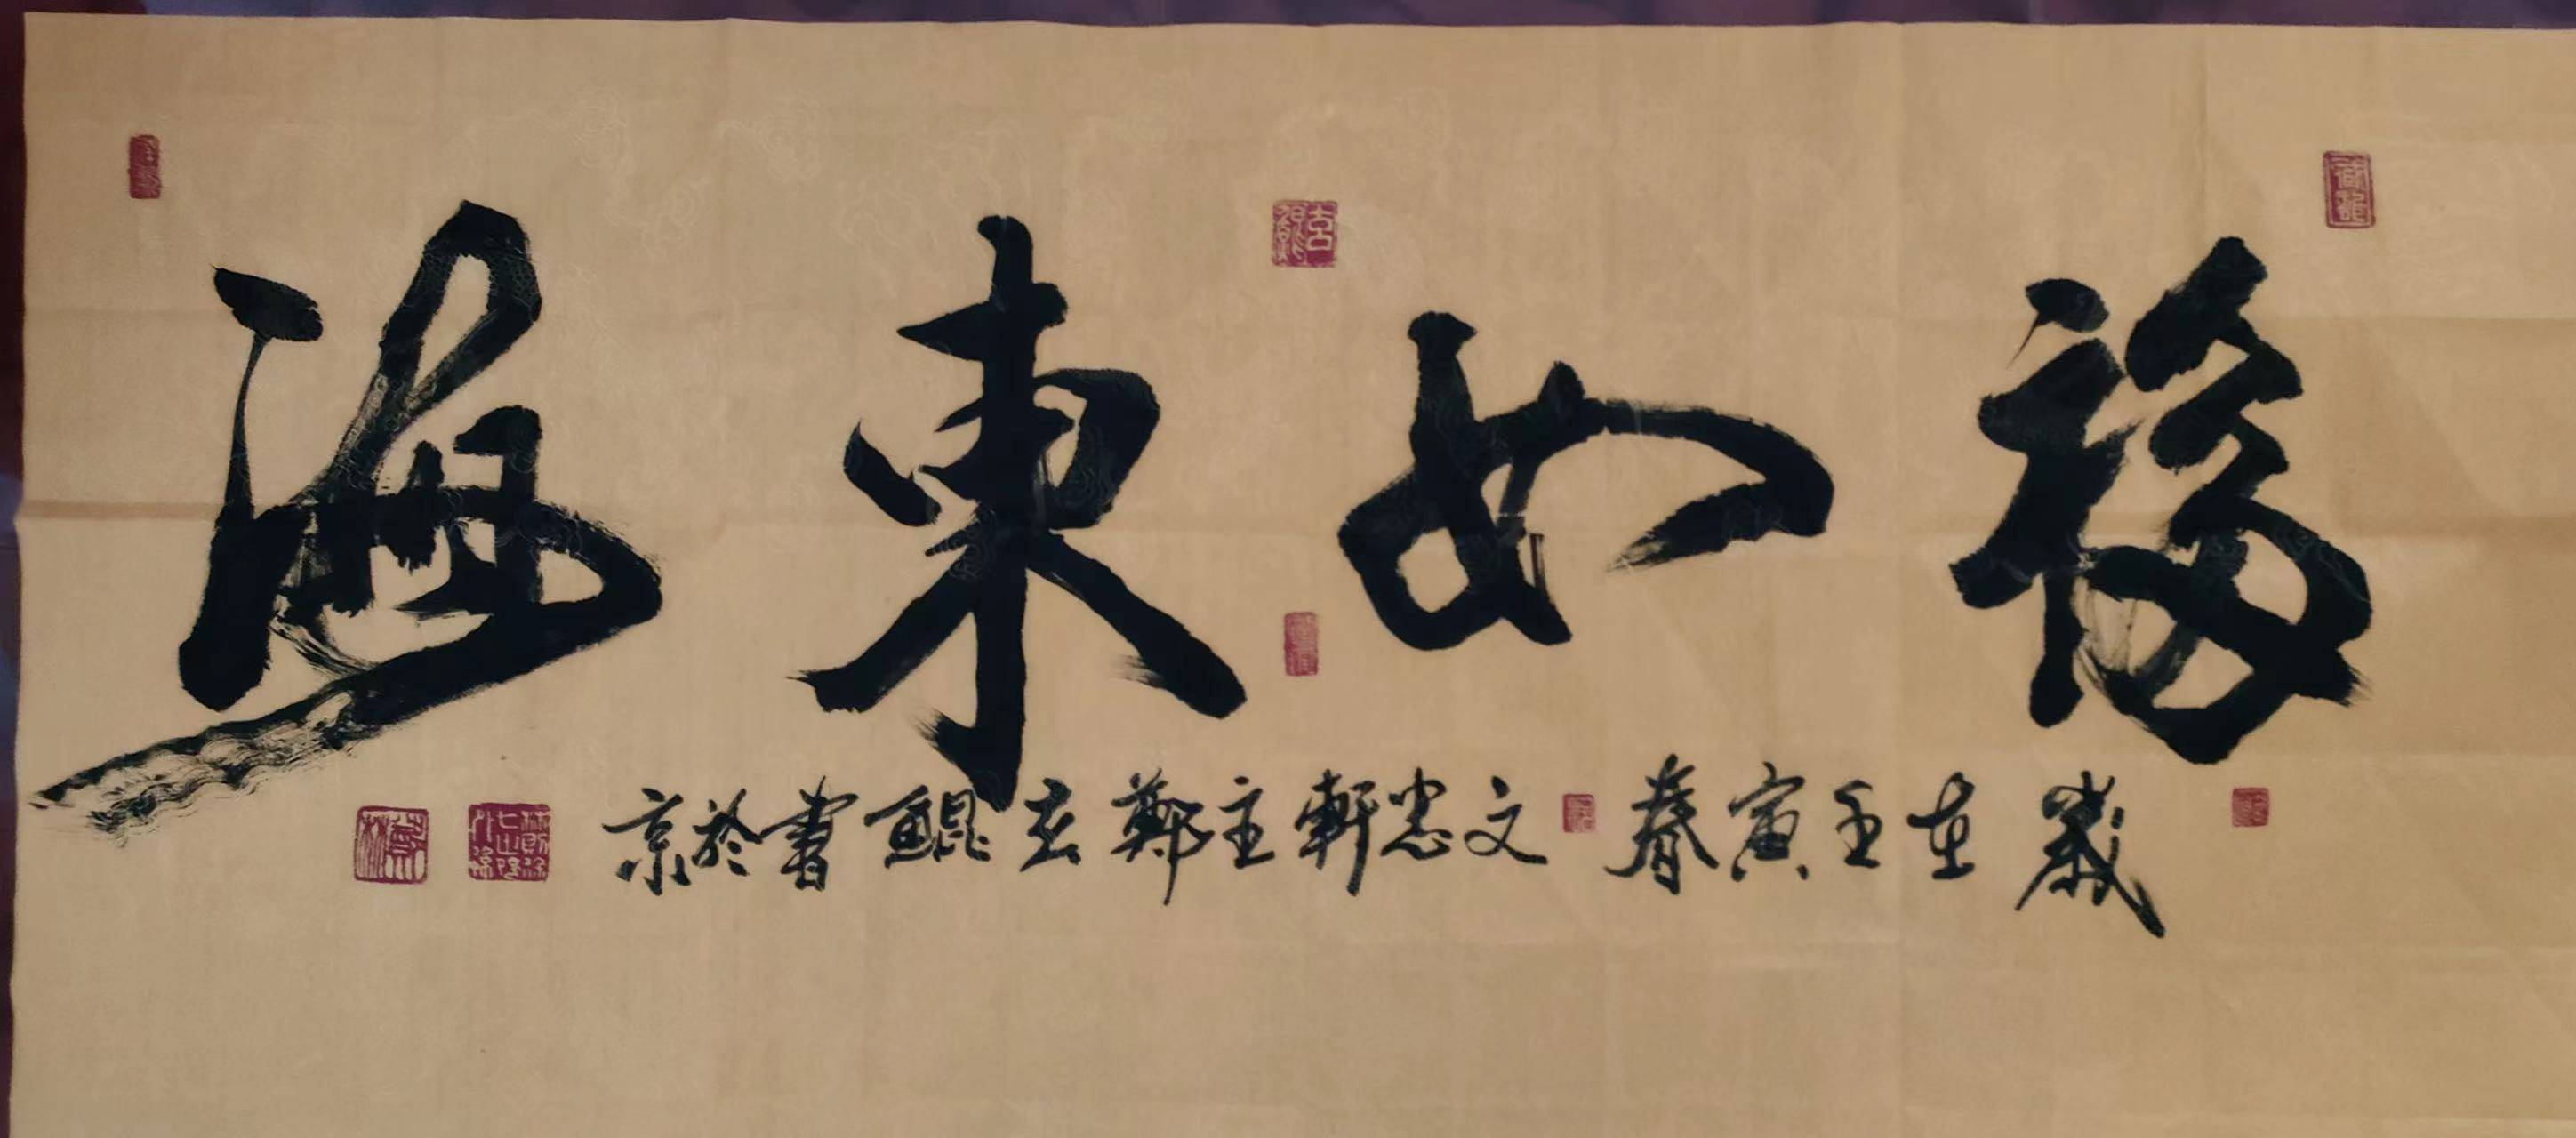 福如東海
歲在壬寅春文忠軒主鄭玄鯤書於京